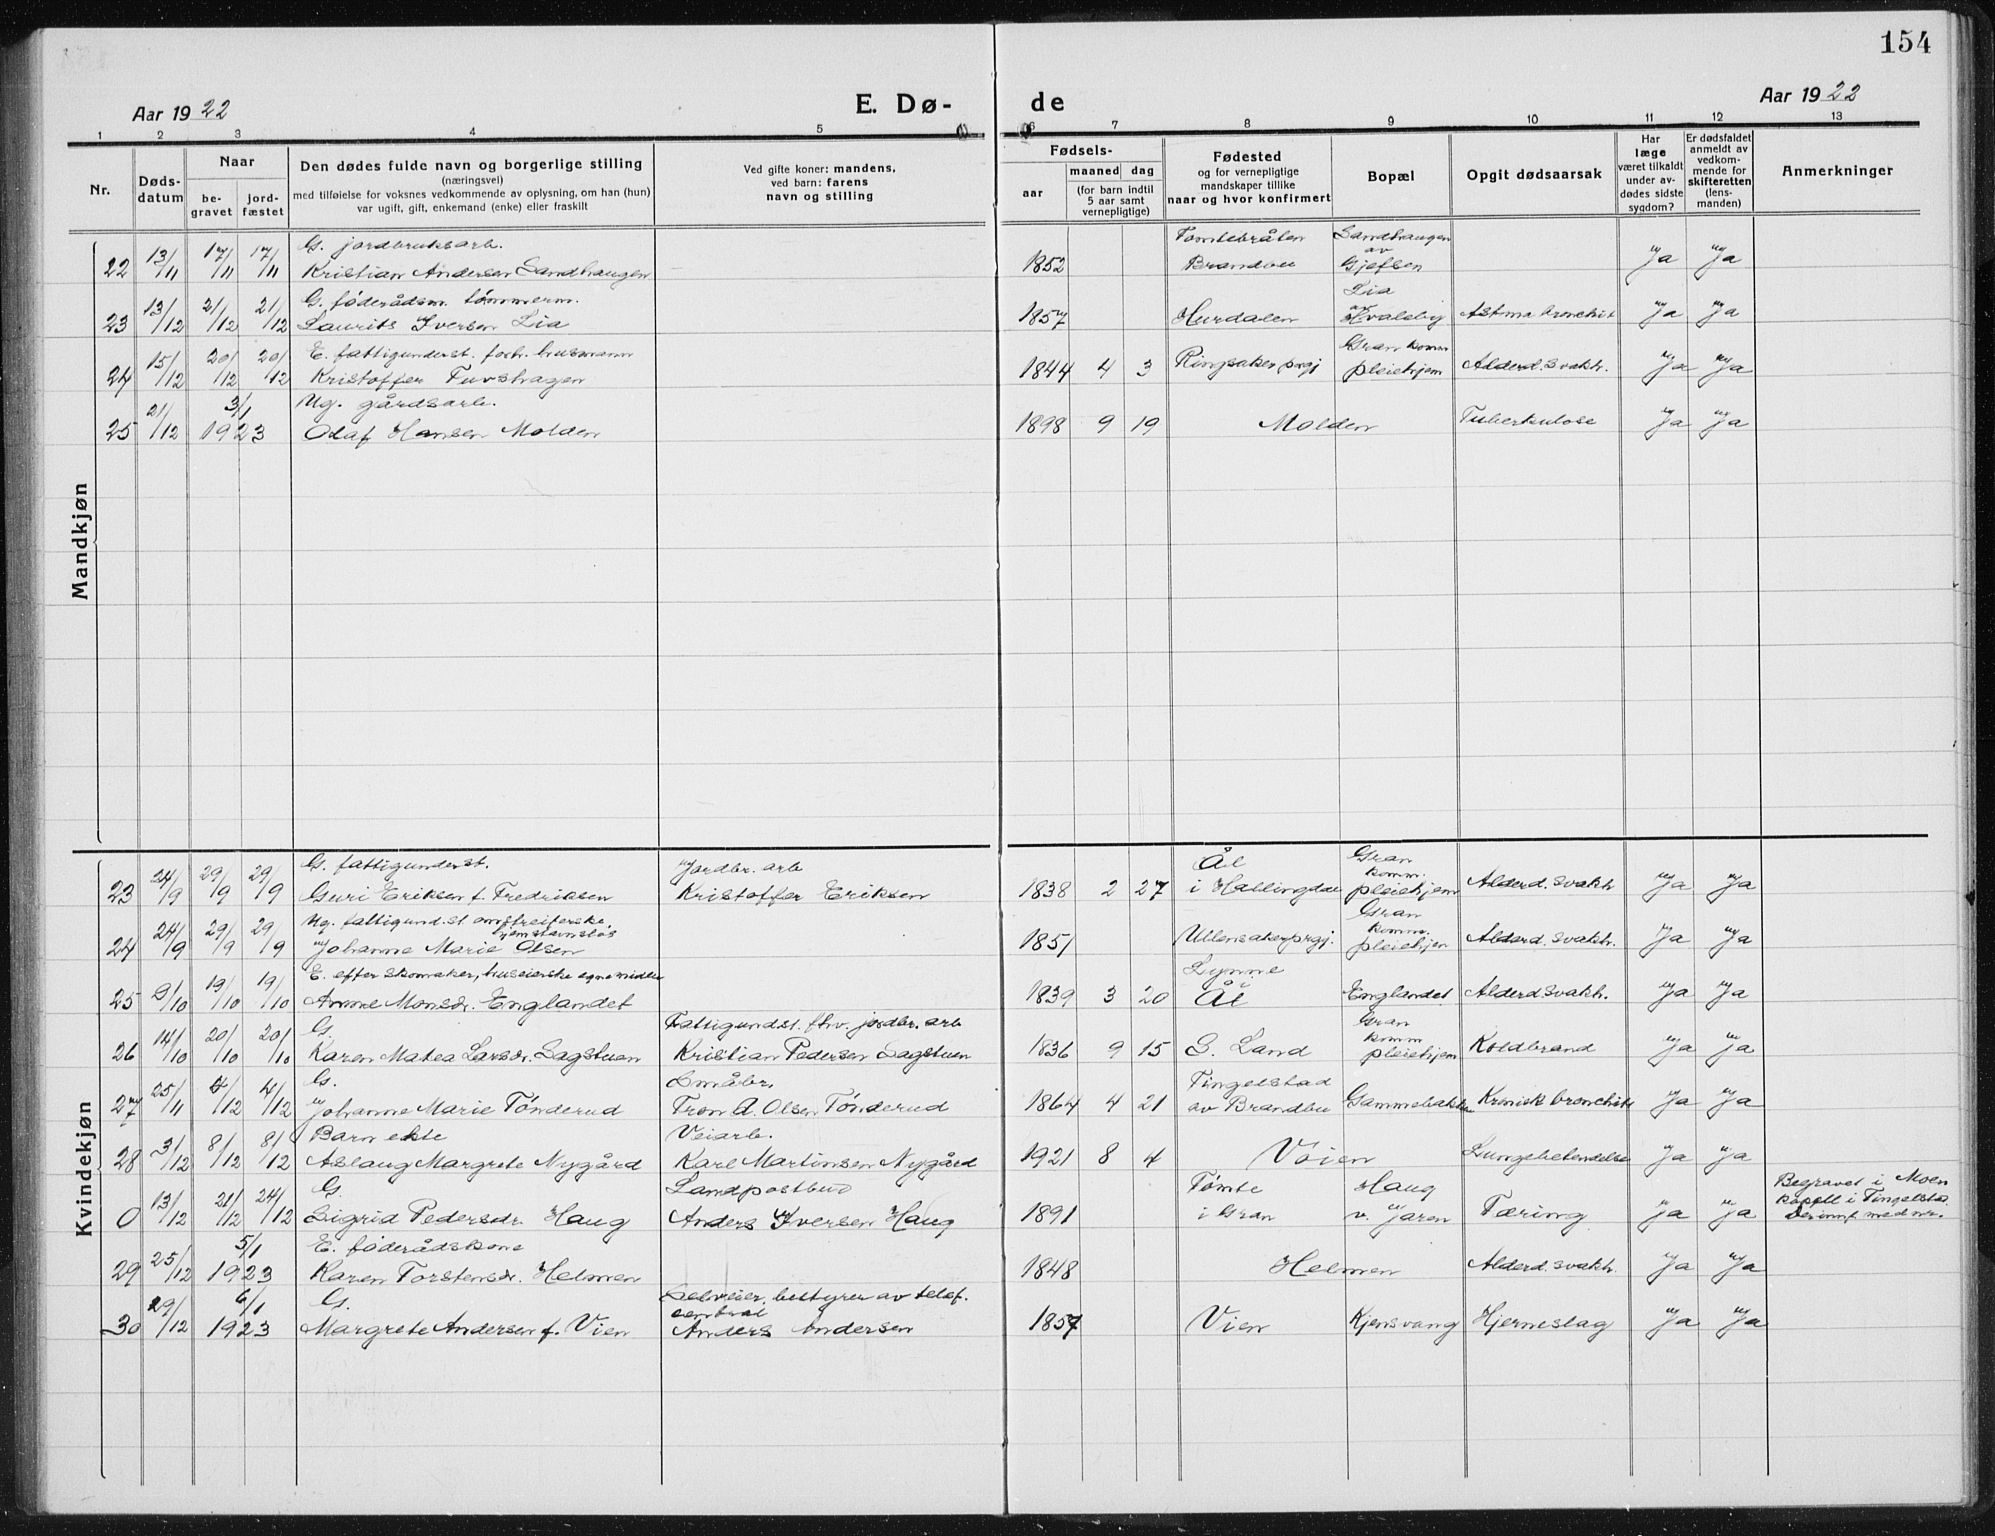 154
Aar 1922 E. Dø- de Aar 1922
1 2 3 4 5 6 7 8 9 10 11 12 13
Nr. Døds-datum Naar be-gravet jord-fæstet Den dødes fulde navn og borgerlige stilling (næringsvei) med tilføielse for voksnes vedkommende av oplysning, om han (hun) var ugift, gift, enkemand (enke) eller fraskilt Ved gifte koner: mandens, ved barn: farens navn og stilling Fødsels- aar maaned dag (for barn indtil 5 aar samt vernepligtige) Fødested og for vernepligtige mandskaper tillike naar og hvor konfirmert Bopæl Opgit dødsaarsak Har læge været tilkaldt under av-dødes sidste sygdom? Er dødsfaldet anmeldt av vedkom-mende for skifteretten (lens-manden) Anmerkninger
Mandkjøn
G. jordbruksarb. Tomtebråten Sandhaugen av
22 13/11 17/11 17/11 Kristian Andersen Sandhaugen 1852 Brandbu Gjefsen Ja Ja
G. føderådsm. tømmerm. Lia
23 13/12 21/12 21/12 Laurits Iversen Lia 1857 Hurdalen av Hvaleby Astma bronchit Ja Ja
E. fattigunderst. forh. husmann Gran komm
24 15/12 20/12 20/12 Kristoffer Tuvshagen 1844 4 3 Ringsaker prgj pleiehjem Alderd. svakh. Ja Ja
Ug. gårdsarb.
25 21/12 3/1 1923 Olaf Hansen Molden 1898 9 19 Molden Tuberkulose Ja Ja
Kvindekjøn
G. fattigunderst. Jordbr. arb Ål Gran komm.
23 24/9 29/9 29/9 Guri Eriksen f. Fredriksen Kristoffer Eriksen 1838 2 27 i Hallingdal pleiehjem Alderd. svakh Ja Ja
Ug. fattigund.st omstreiferske hjemstavnsløs Gran komm.
24 24/9 29/9 29/9 Johanne Marie Olsen 1851 Ullensaker prgj. pleiehjem Alderd. svakh. Ja Ja
E. efter skomaker, huseierske egne midler Lynne i
25 9/10 19/10 19/10 Anne Monsdr. Englandet 1839 3 20 Ål Englandet Alderd. svakh. Ja Ja
G. Fattigundst. fhv. jordbr. arb Gran komm
26 14/10 20/10 20/10 Karen Matea Larsdr. Sagstuen Kristian Pedersen Sagstuen 1836 9 15 S. Land pleiehjem Koldbrand Ja Ja
G. Småbr. Tingelstad
27 25/11 4/12 4/12 Johanne Marie Tønderud Tron A. Olsen Tønderud 1864 4 21 av Brandbu Gammebakken Kronisk bronchitt Ja Ja
Barn ekte Veiarb.
28 3/12 8/12 8/12 Aslaug Margrete Nygård Karl Martinsen Nygård 1921 8 4 Vøien Lungebetendelse Ja Ja
G. Landpostbud Tømte Haug Begravet i Moen
0 13/12 21/12 24/12 Sigrid Pedersdr. Haug Anders Iversen Haug 1891 i Gran v. Jaren Tæring Ja Ja kapell i Tingelstad
E. føderådskone
29 25/12 5/1 1923 Karen Torstensdr. Helmen 1848 Helmen Alderd. svakh. Ja Ja
G. Selveier, bestyrer av telef. sentral
30 29/12 6/1 1923 Margrete Andersen f. Vien Anders Andersen 1857 Vien Kjensvang Hjerneslag Ja Ja